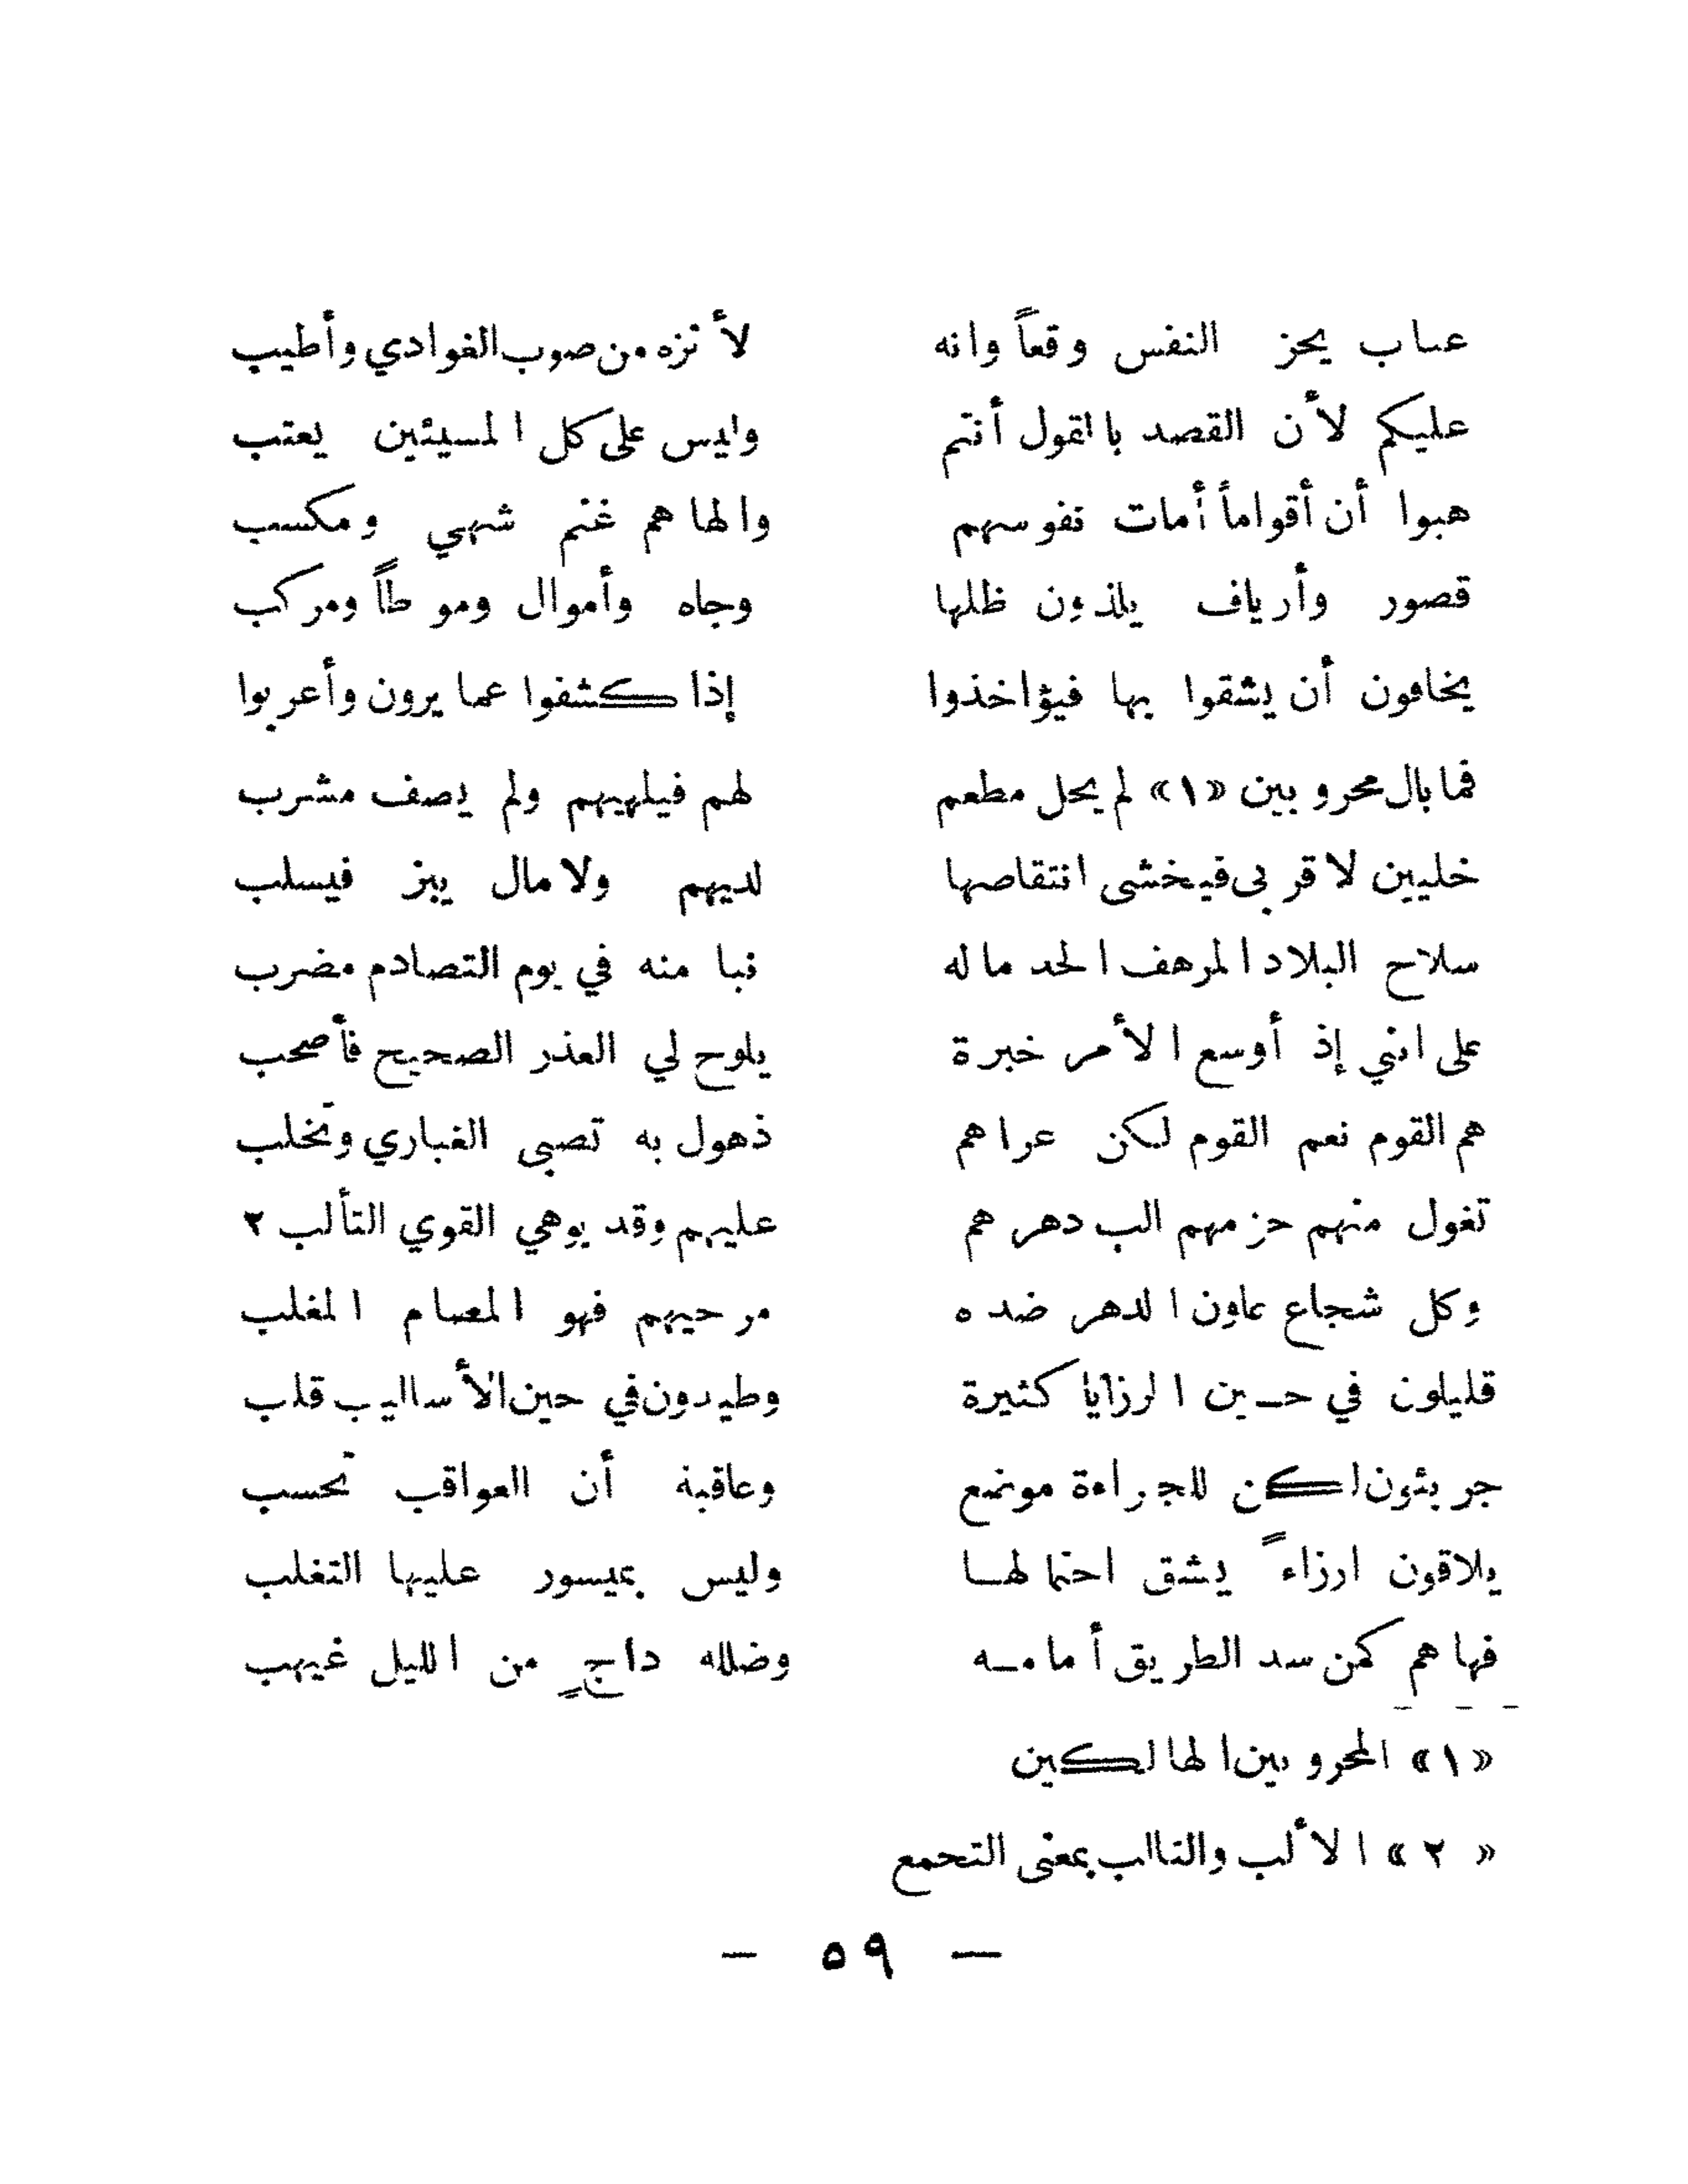 عتاب يحز النفس وقعاً وانه لأنزه من صوب الغوادي وأطيب
عليكم لأن القصد بالقول أنتم وليس على كل المسيئين يعتب
هبوا أن أقواماً أمات نفوسهم والهاهم غنم شهي ومكسب
قصور وأرياف يلذون ظلها وجاه وأموال وموطأ ومركب
يخافون أن يشقوا بها فيؤاخذوا إذا كشفوا عما يرون وأعربوا
فما بال محروبين «١» لم يحل مطعم لهم فيلهيهم ولم يصف مشرب
خليين لا قربى فيخشى انتقاصها لديهم ولا مال يبز فيسلب
سلاح البلاد المرهف الحد ماله نبا منه في يوم التصادم مضرب
على انني إذ أوسع الأمر خبرة يلوح لي العذر الصحيح فأصحب
هم القوم نعم القوم لكن عراهم ذهول به تصبى الغباري وتخلب
تغول منهم حزمهم الب دهرهم عليهم وقد يوهي القوي التألب ٢
وكل شجاع عاون الدهر ضده مرحيهم فهو المصام المغلب
قليلون في حين الرزايا كثيرة وطيدون في حين الأساليب قلب
جريئون لكن للجراءة موضع وعاقبة أن العواقب تحسب
يلاقون ارزاءً يشق احتمالها وليس بميسور عليها التغلب
فهاهم كمن سد الطريق أمامه وضلله داجٍ من الليل غيهب
«١» المحروبين الهالكين
«٢» الألب والتالب بمعنى التجمع
— ٥٩ —